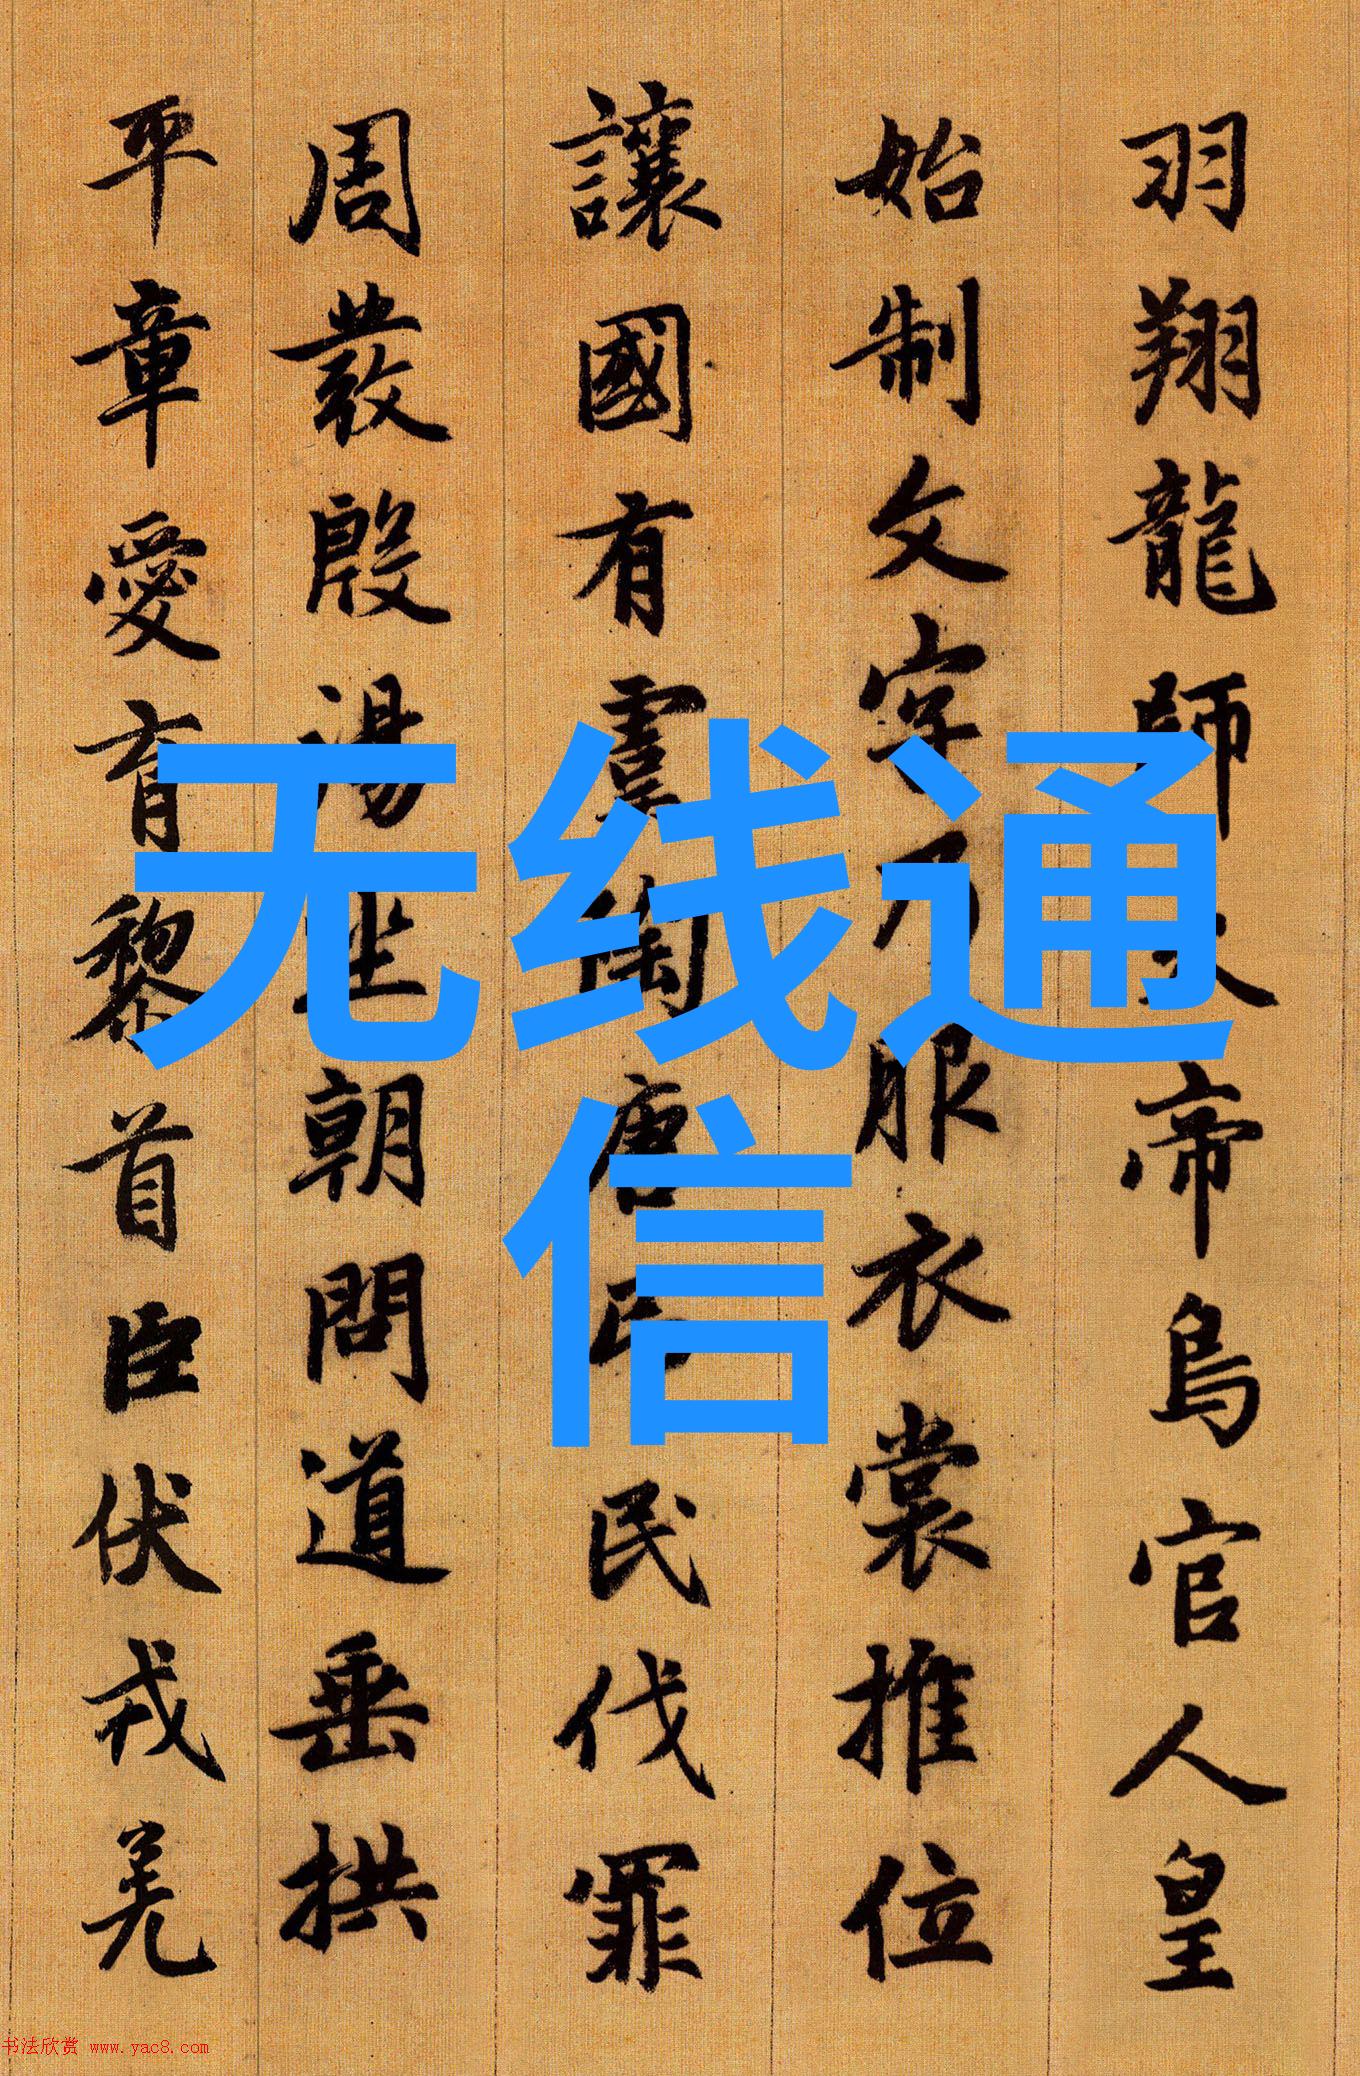 羽翔龍師火帝鳥官人皇
始制文字乃服衣裳推位
讓國有虞陶唐民伐罪
周發殷湯坐朝問道垂拱
平章愛育黎首臣伏戎羌
无线通
信
书法欣赏 www.yac8.com